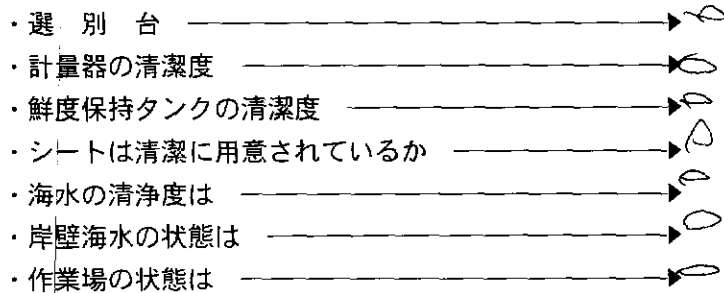 ・選 別 台 ――――――▶○
・計量器の清潔度 ――――――▶○
・鮮度保持タンクの清潔度 ――――――▶○
・シートは清潔に用意されているか ――――――▶△
・海水の清浄度は ――――――▶○
・岸壁海水の状態は ――――――▶○
・作業場の状態は ――――――▶○